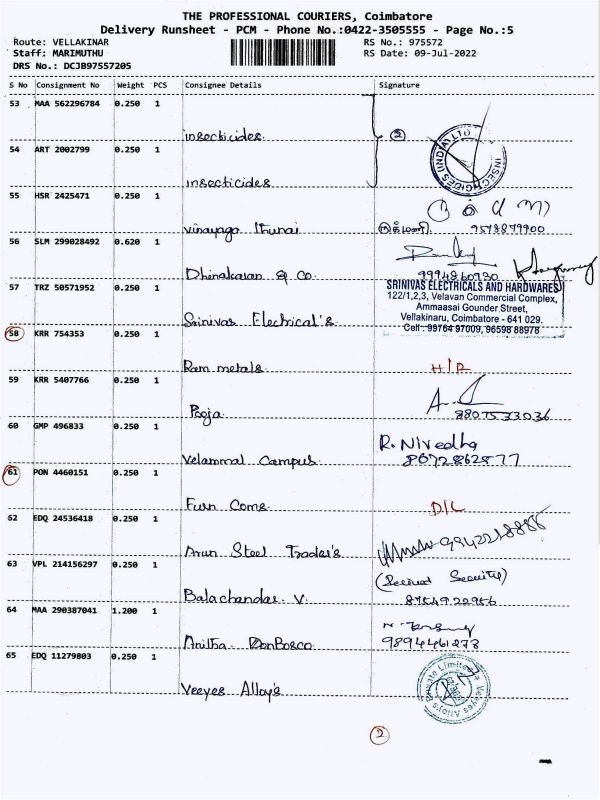 THE PROFESSIONAL COURIERS, Coimbatore
Delivery Runsheet - PCM - Phone No.:0422-3505555 - Page No.:5
Route: VELLAKINAR RS No.: 975572
Staff: MARIMUTHU RS Date: 09-Jul-2022
DRS No.: DCJB97557205
S No Consignment No Weight PCS Consignee Details Signature
53 MAA 562296784 0.250 1
insecticides 2
INSECTICIDES (INDIA) LTD
54 ART 2002799 0.250 1
insecticides
55 HSR 2425471 0.250 1
vinayaga 9578879900
56 SLM 299028492 0.620 1
Dhinakaran & Co. 9994860930
57 TRZ 50571952 0.250 1
SRINIVAS ELECTRICALS AND HARDWARES
122/1,2,3, Velavan Commercial Complex,
Ammaasai Gounder Street,
Vellakinaru, Coimbatore - 641 029.
Cell : 99764 97009, 96598 88978
Srinivas Electrical's
58 KRR 754353 0.250 1
Ram metals
59 KRR 5407766 0.250 1
Pooja 8807533036
60 GMP 496833 0.250 1
R. Nivedha
Velammal Campus
61 PON 4460151 0.250 1
Furn Coms D/L
62 EDQ 24536418 0.250 1
Arun Steel Trader's
63 VPL 214156297 0.250 1
Security)
Balachandar. V.
64 MAA 290387041 1.200 1
Anitha DonBosco 9894461273
65 EDQ 11279803 0.250 1
Veeyes Alloy's
Veeyes Alloys Private Limited
2